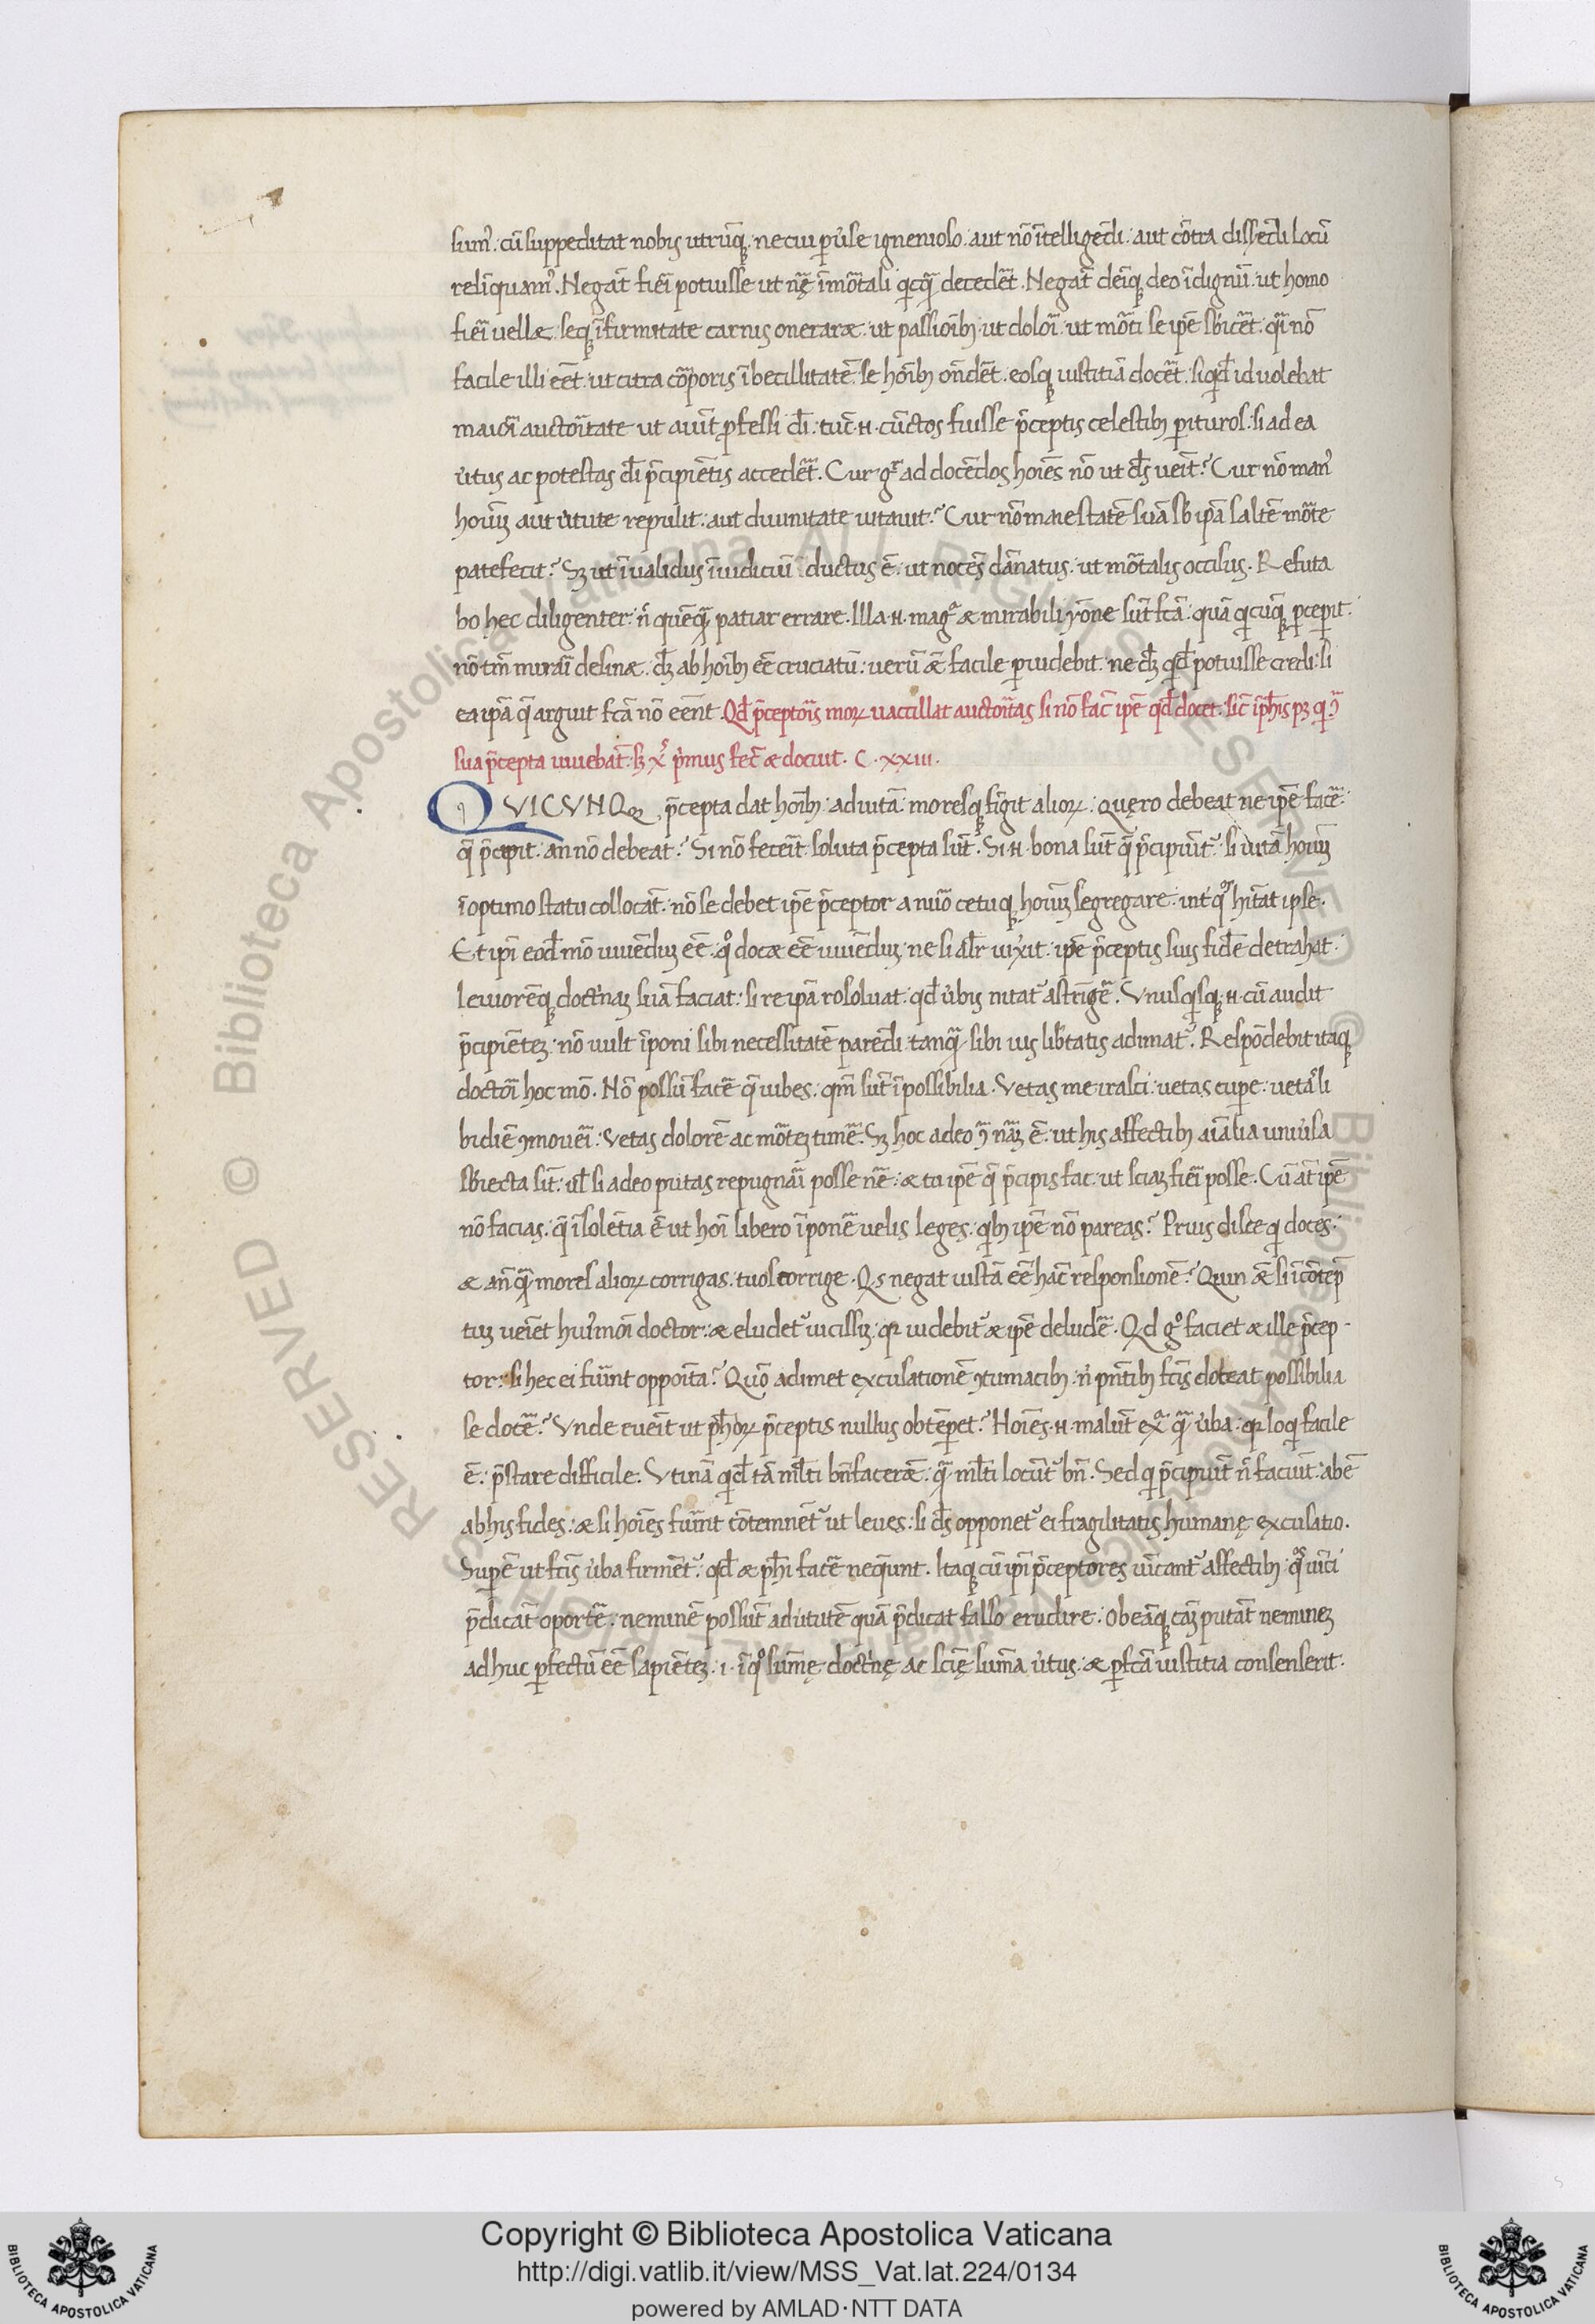 sum᷒. cū suppeditat nobis utrūq; ne cui puͥse igneniolo. aut nō ītelligēdi. aut cōtra dissēdi locū
relīquam᷒. Negāt fiei᷈ potuisse ut nr̄ę īmōtali qͥcq̄ decedēt. Negāt deīq; deo īdignū. ut homo
fiei᷈ uellæ. seq; īfirmitate carnis oneraræ. ut passioīb; ut dolōi. ut mōti se ip̄e sb̄icēt. qͣi nō
facile illi eēt. ut citra cōporis ībecillitatē. se hoīb; ōndēt. eosq; iustitiā docēt. siqͥd̄ id uolebat
maiōi auctōitate ut aiūt ꝓfessi dī. tūc .n. cūctos fuisse p̄ceptis celestib; pituros. si ad ea
uͥtus ac potestas dī p̄cipiētis accedēt. Cur gͦ ad docēdos hoīes nō ut dˉs ueīt? Cur nō man᷒
hoīuȝ aut uͥtute repulit. aut diuinitate uitauit? Cur nō maiestatē suā sb̄ ipā saltē mōte
patefecit? Sȝ ut īualidus ī iudiciū ductus ē. ut nocēs dānatus. ut mōtalis occisus. Refuta
bo hec diligenter. n̄ quēq̄ patiar errare. Illa .n. magͣ æ mirabili rōne sūt fcā. quā qͥcūq; pcepit.
nō tm̄ mirai᷈ desinæ. dȝ ab hoīb; eē cruciatū. uerū ǣ facile puidebit. ne dȝ qd̄ potuisse credi. si
ea ipā q̄ arguit fcā nō eēnt. Qd̄ p̄ceptōis moꝝ uaccillat auctōitas si nō fac̄ ip̄e qd̄ docet. sic̄ īph̄is pȝ qͥ ꝯ̄
sua p̄cepta uiuebāt. sȝ xͬ p̄mus fec̄ æ docuit. C. XXIII.
QVICVNQꝫ p̄cepta dat hoīb; ad uitā. moresq; fīgit alioꝝ. quęro debeat ne ip̄e facē.
q̄ p̄cipit. an nō debeat? Si nō feceīt. soluta p̄cepta sūt. Si .n. bona sūt q̄ p̄cipiūt᷒. si uitā hoīuȝ
ī optimo statu collocāt. nō se debet ip̄e p̄ceptor a nūo cetuq; hoīuȝ segregare. int̄ qͦs hītat ipse.
Et ipī eod̄ mō uiuēduȝ eē. qͦ docæ eē uiuēduȝ. ne si al̄r uixit. ip̄e p̄ceptis suis fidē detrahat.
leuiorēq; doctͥnaȝ suā faciat. si re ipā rosoluat. qd̄ uͥbis nitat᷒ astrīgē. Vnusqͥsq; .n. cū audit
p̄cipiēteȝ. nō uult īponi sibi necessitatē parēdi. tanq̄ sibi ius lib̄tatis adimat᷒. Respōdebit itaq;
doctōi hoc mō. Nō possū facē q̄ iubes. qm̄ sūt īpossibilia. Vetas me irasci. uetas cupe. uetas li
bidiē ꝯmouei᷈. Vetas dolorē ac mōteȝ timē. Sȝ hoc adeo ꝯ̄ nāȝ ē. ut his affectib; aīalia uniuͥsa
sb̄iecta sīt. ul̄ si adeo putas repugnai᷈ posse nē. æ tu ip̄e q̄ p̄cipis fac. ut sciaȝ fiei᷈ posse. Cū āt ip̄e
nō facias. q̄ īsolētia ē ut hoī libero īponē uelis leges. qͥb; ip̄e nō pareas? Prius disce qͥ doces.
æ anq̄ mores alioꝝ corrigas. tuos corrige. Qs negat iustā eē hāc respōsionē? Quin ǣ si ī cōtēp
tuȝ ueīet huͥmōi doctor. æ eludet᷒ uicissiȝ. qꝛ uidebit᷒ æ ip̄e deludē. Qd gͦ faciet æ ille p̄cep-
tor. si hec ei fuīnt oppōita? Quō adimet excusationē ꝯtumacib;. nͥ pn̄tib; fcīs doceat possibilia
se docē? Vnde eueīt ut ph̄oꝝ p̄ceptis nullus obtēpet? Hoīes .n. malūt exͣ q̄ uͥba. qꝛ loqͥ facile
ē. p̄stare difficile. Vtinā qͥd̄ tā ml̄ti bn̄faceræ. q̄ ml̄ti locūt᷒ bn̄. Sed qͥ p̄cipiūt n̄ faciūt. abē
ab his fides. æ si hoīes fuīnt cōtemnēt᷒ ut leues. si dˉs opponet᷒ ei fragilitatis humanę excusatio.
Supē ut fcīs uͥba firmēt᷒. qd̄ æ ph̄i facē neqͥunt. Itaq; cū ipī p̄ceptores uīcant᷒ affectib; qͦs uīci
p̄dicāt oportē. neminē possūt ad uͥtutē quā p̄dicat falso erudire. Ob eāq; cāȝ putāt nemineȝ
adhuc pfectū eē sapiēteȝ. i. ī qͦ sūmę doctͥnę ac sciē̜ suma uͥtus. æ pfcā iustitia consenserit.
Copyright © Biblioteca Apostolica Vaticana
http://digi.vatlib.it/view/MSS_Vat.lat.224/0134
powered by AMLAD·NTT DATA